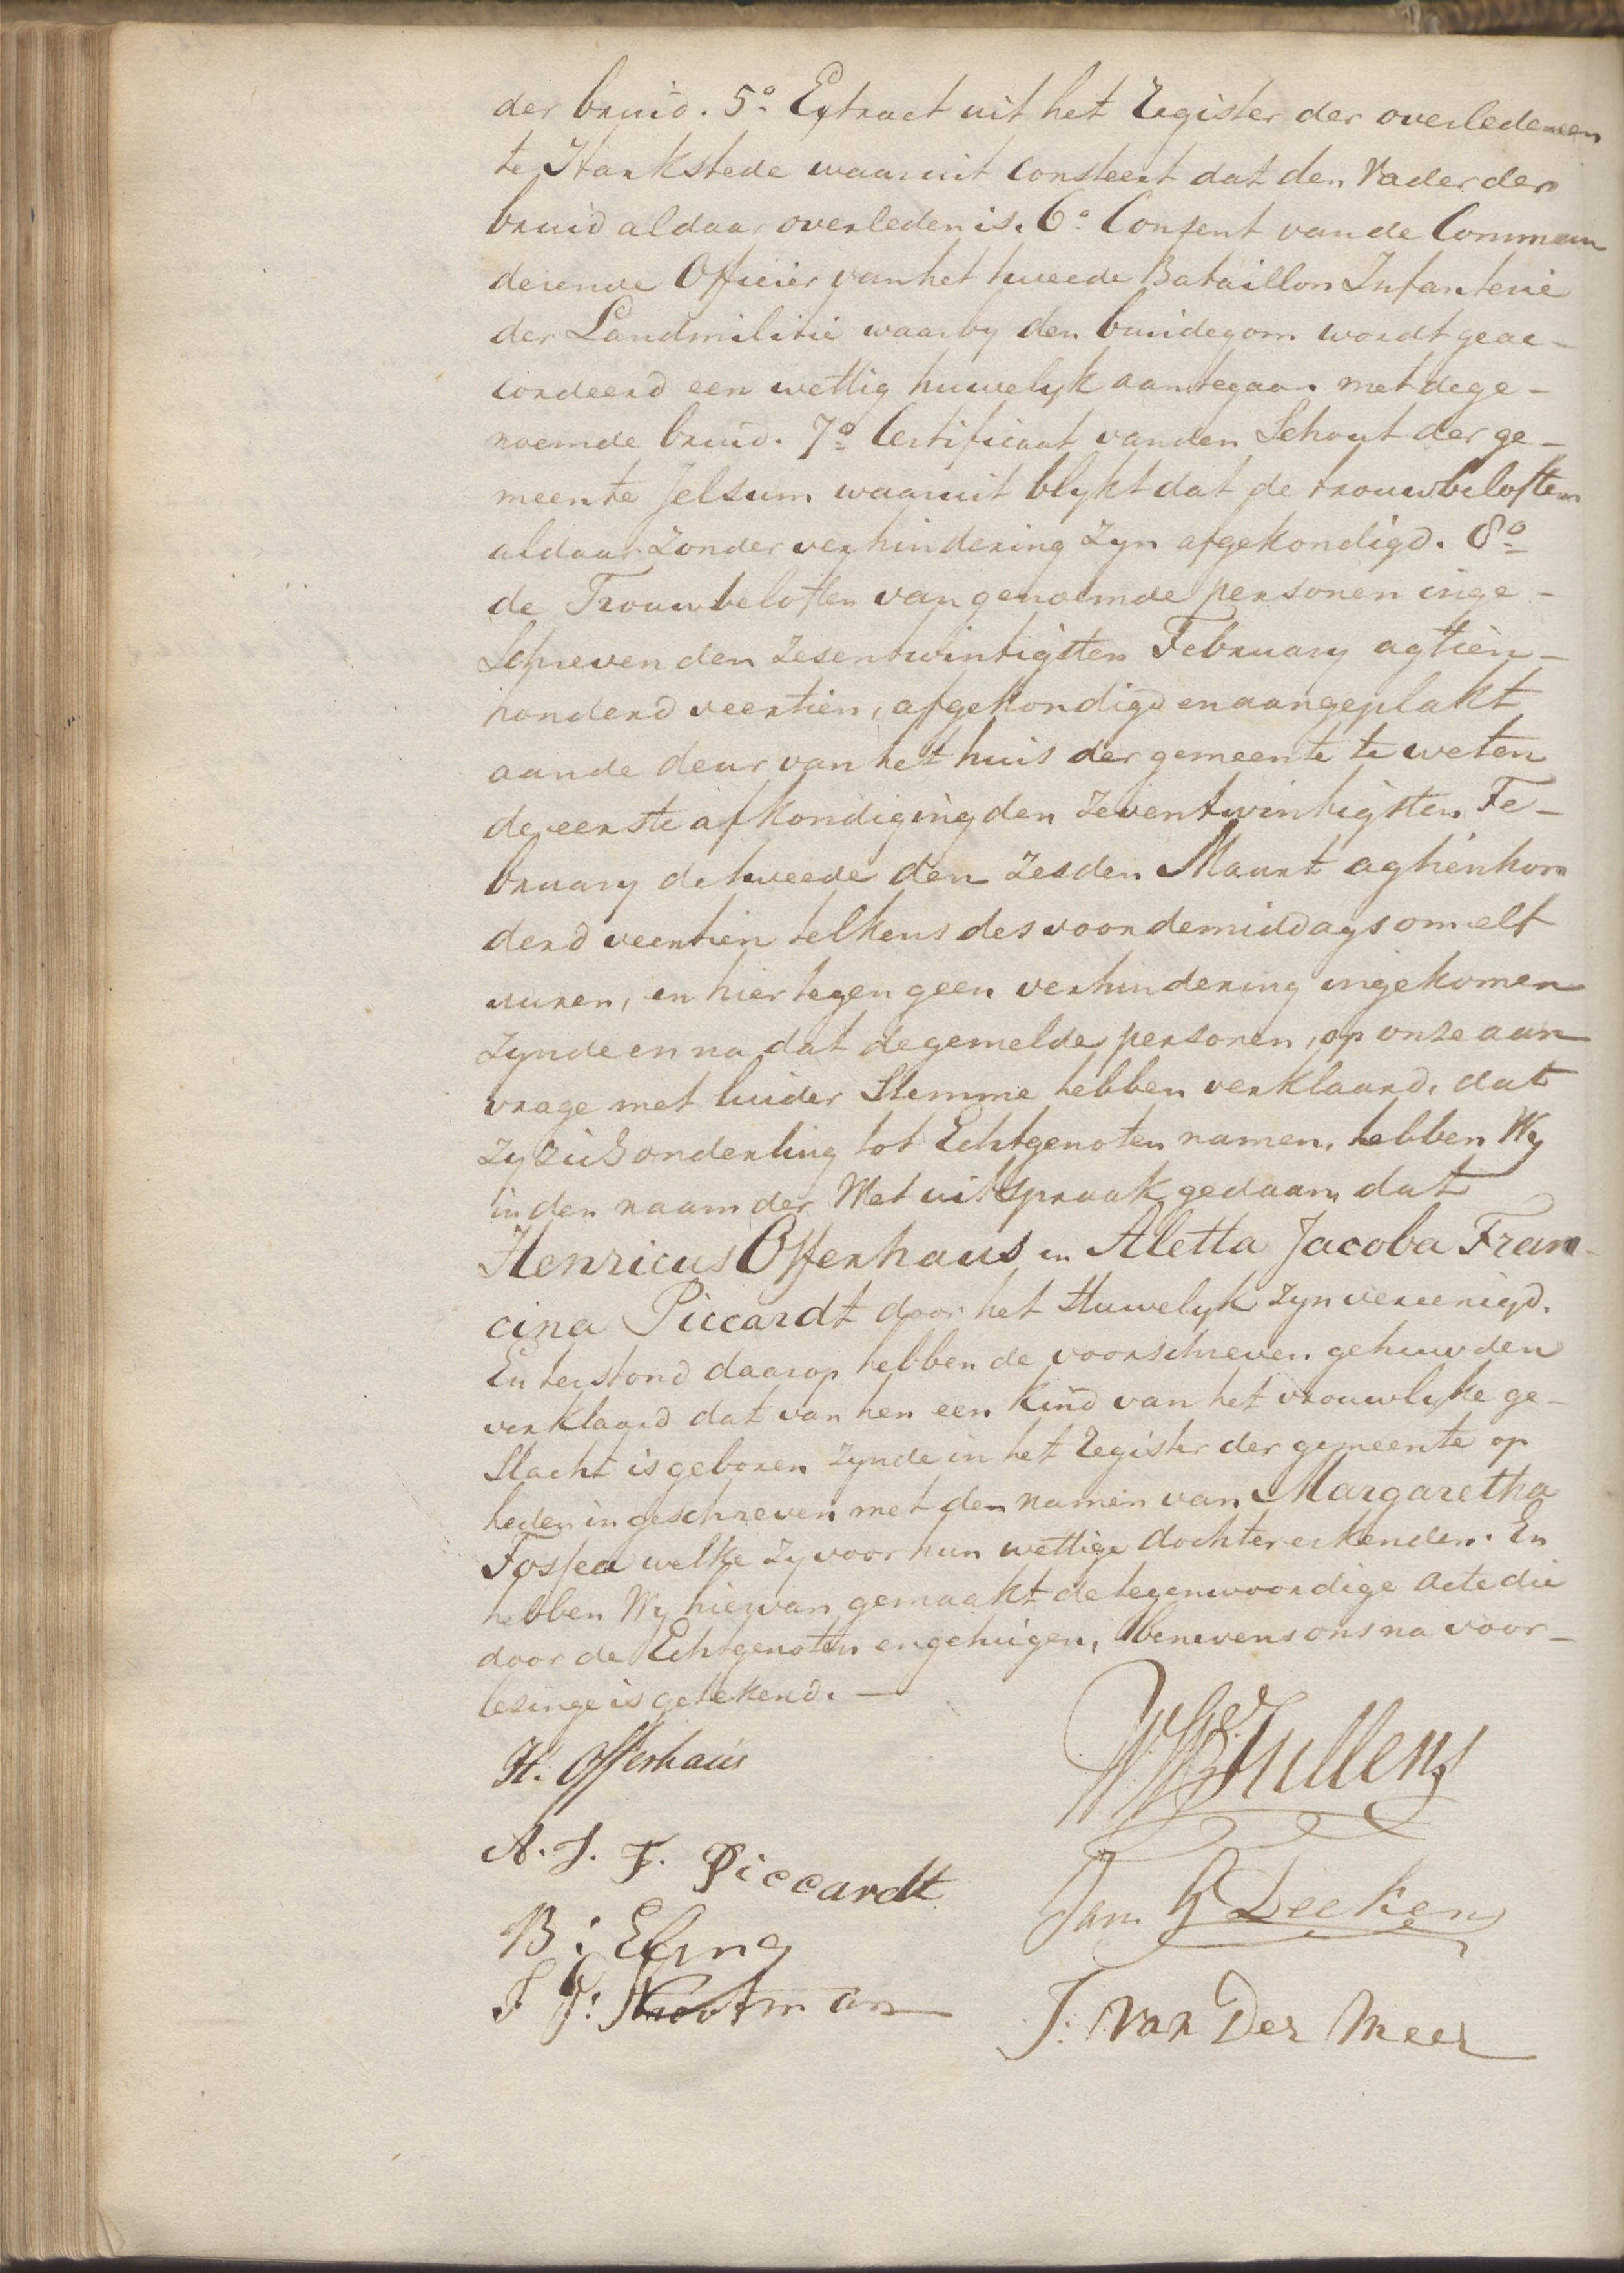 der bruid. 5º Extract uit het Register der overledenen
te Harkstede waaruit consteert dat den Vader der
bruid aldaar overleden is. 6º Consent van de Comman
derende Officier van het tweede Bataillon Infanterie
der Landmilitie waarby den bruidegom wordt geac-
cordeerd een wettig huwelyk aantegaan met de ge-
noemde bruid. 7º Certificaat van den Schout der ge-
meente Jelsum waaruit blykt dat de trouwbeloften
aldaar zonder verhindering zyn afgekondigd. 8º
de Trouwbeloften van genoemde personen inge-
Schreven den zesentwintigsten February agtien-
honderd veertien, afgekondigd en aangeplakt
aan de deur van het huis der gemeente te weten
de eerste afkondiging den zeventwintigsten Fe-
bruary de tweede den zesden Maart agtienhon
derd veertien telkens des voordemiddags om elf
uuren, en hier tegen geen verhindering ingekomen
zynde en na dat de gemelde personen, op onze aan
vrage met luider Stemme hebben verklaard, dat
zy zich onderling tot Echtgenoten namen, hebben Wy
in den naam der Wet uitspraak gedaan dat
Henricus Offerhaus en Aletta Jacoba Fran-
cina Piccardt door het Huwelyk zyn vereenigd.
En terstond daarop hebben de voorschreven gehuwden
verklaard dat van hen een kind van het vrouwlyke ge-
slacht is geboren zynde in het Register der gemeente op
heden ingeschreven met den namen van Margaretha
Fossea welke zy voor hun wettige dochter erkenden. En
hebben Wy hiervan gemaakt de tegenwoordige acte die
door de Echtgenoten en getuigen, benevens ons na voor-
lezinge is getekend. —
H. Offerhaus
A. J. F. Piccardt
B: Efing
Jan Deeken
J. Van Der Meer